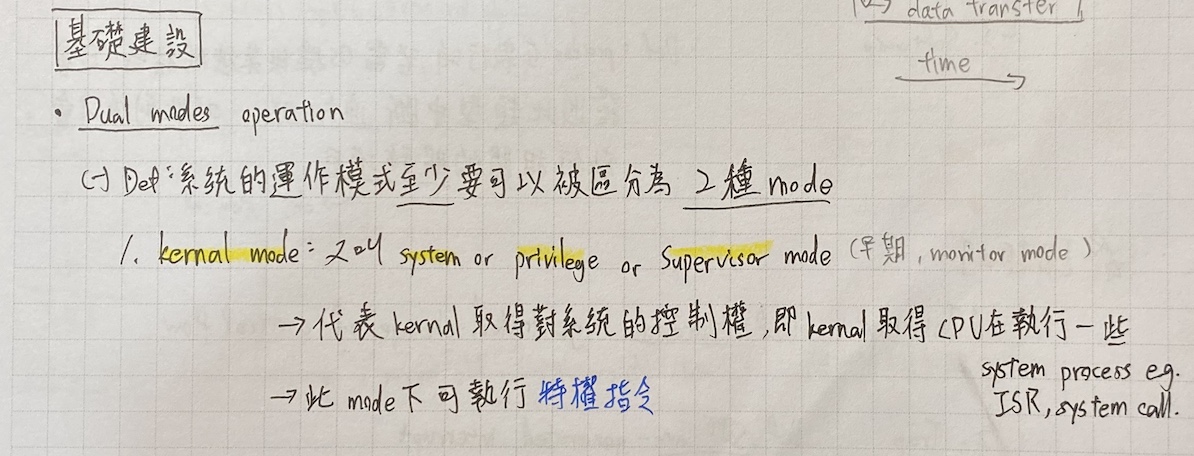 data transfer
time
基礎建設
• Dual modes operation
(一) Def: 系統的運作模式至少要可以被區分為 2種 mode
1. kernal mode: 又叫 system or privilege or Supervisor mode (早期, monitor mode)
→ 代表 kernal 取得對系統的控制權, 即 kernal 取得 CPU在執行一些
system process eg.
ISR, system call.
→ 此 mode 下可執行 特權指令